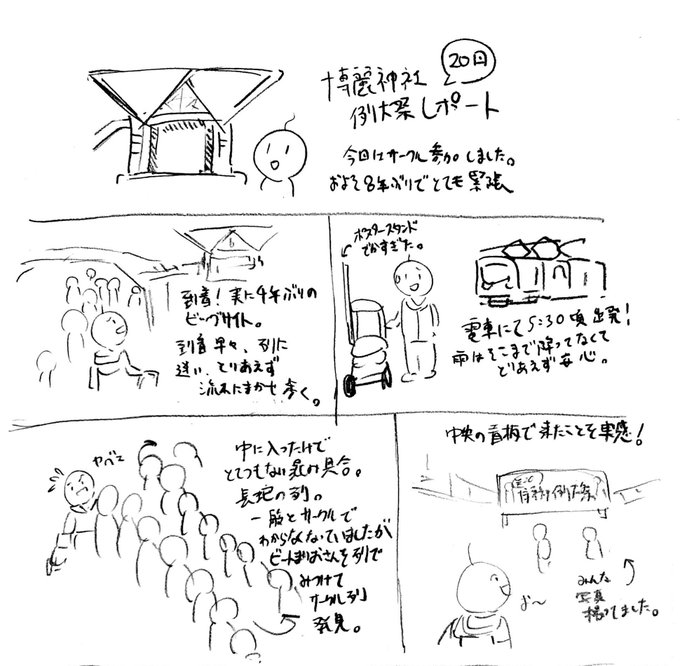 20回
博麗神社
例大祭レポート
今回はサークル参加しました。
およそ8年ぶりでとても緊張
ポスタースタンド
でかすぎた。
電車にて5:30頃出発!
雨はそこまで降ってなくて
とりあえず安心。
到着!実に4年ぶりの
ビッグサイト。
到着早々、列に
迷い、とりあえず
流れにまかせ歩く。
中央の看板で来たことを実感!
例大祭
お〜
みんな
写真
撮ってました。
ヤベェ
中に入っただけで
とてつもない混み具合。
長蛇の列。
一般とサークルで
わからなくなっていましたが
ビートまりおさんを列で
みつけて
サークル列
発見。